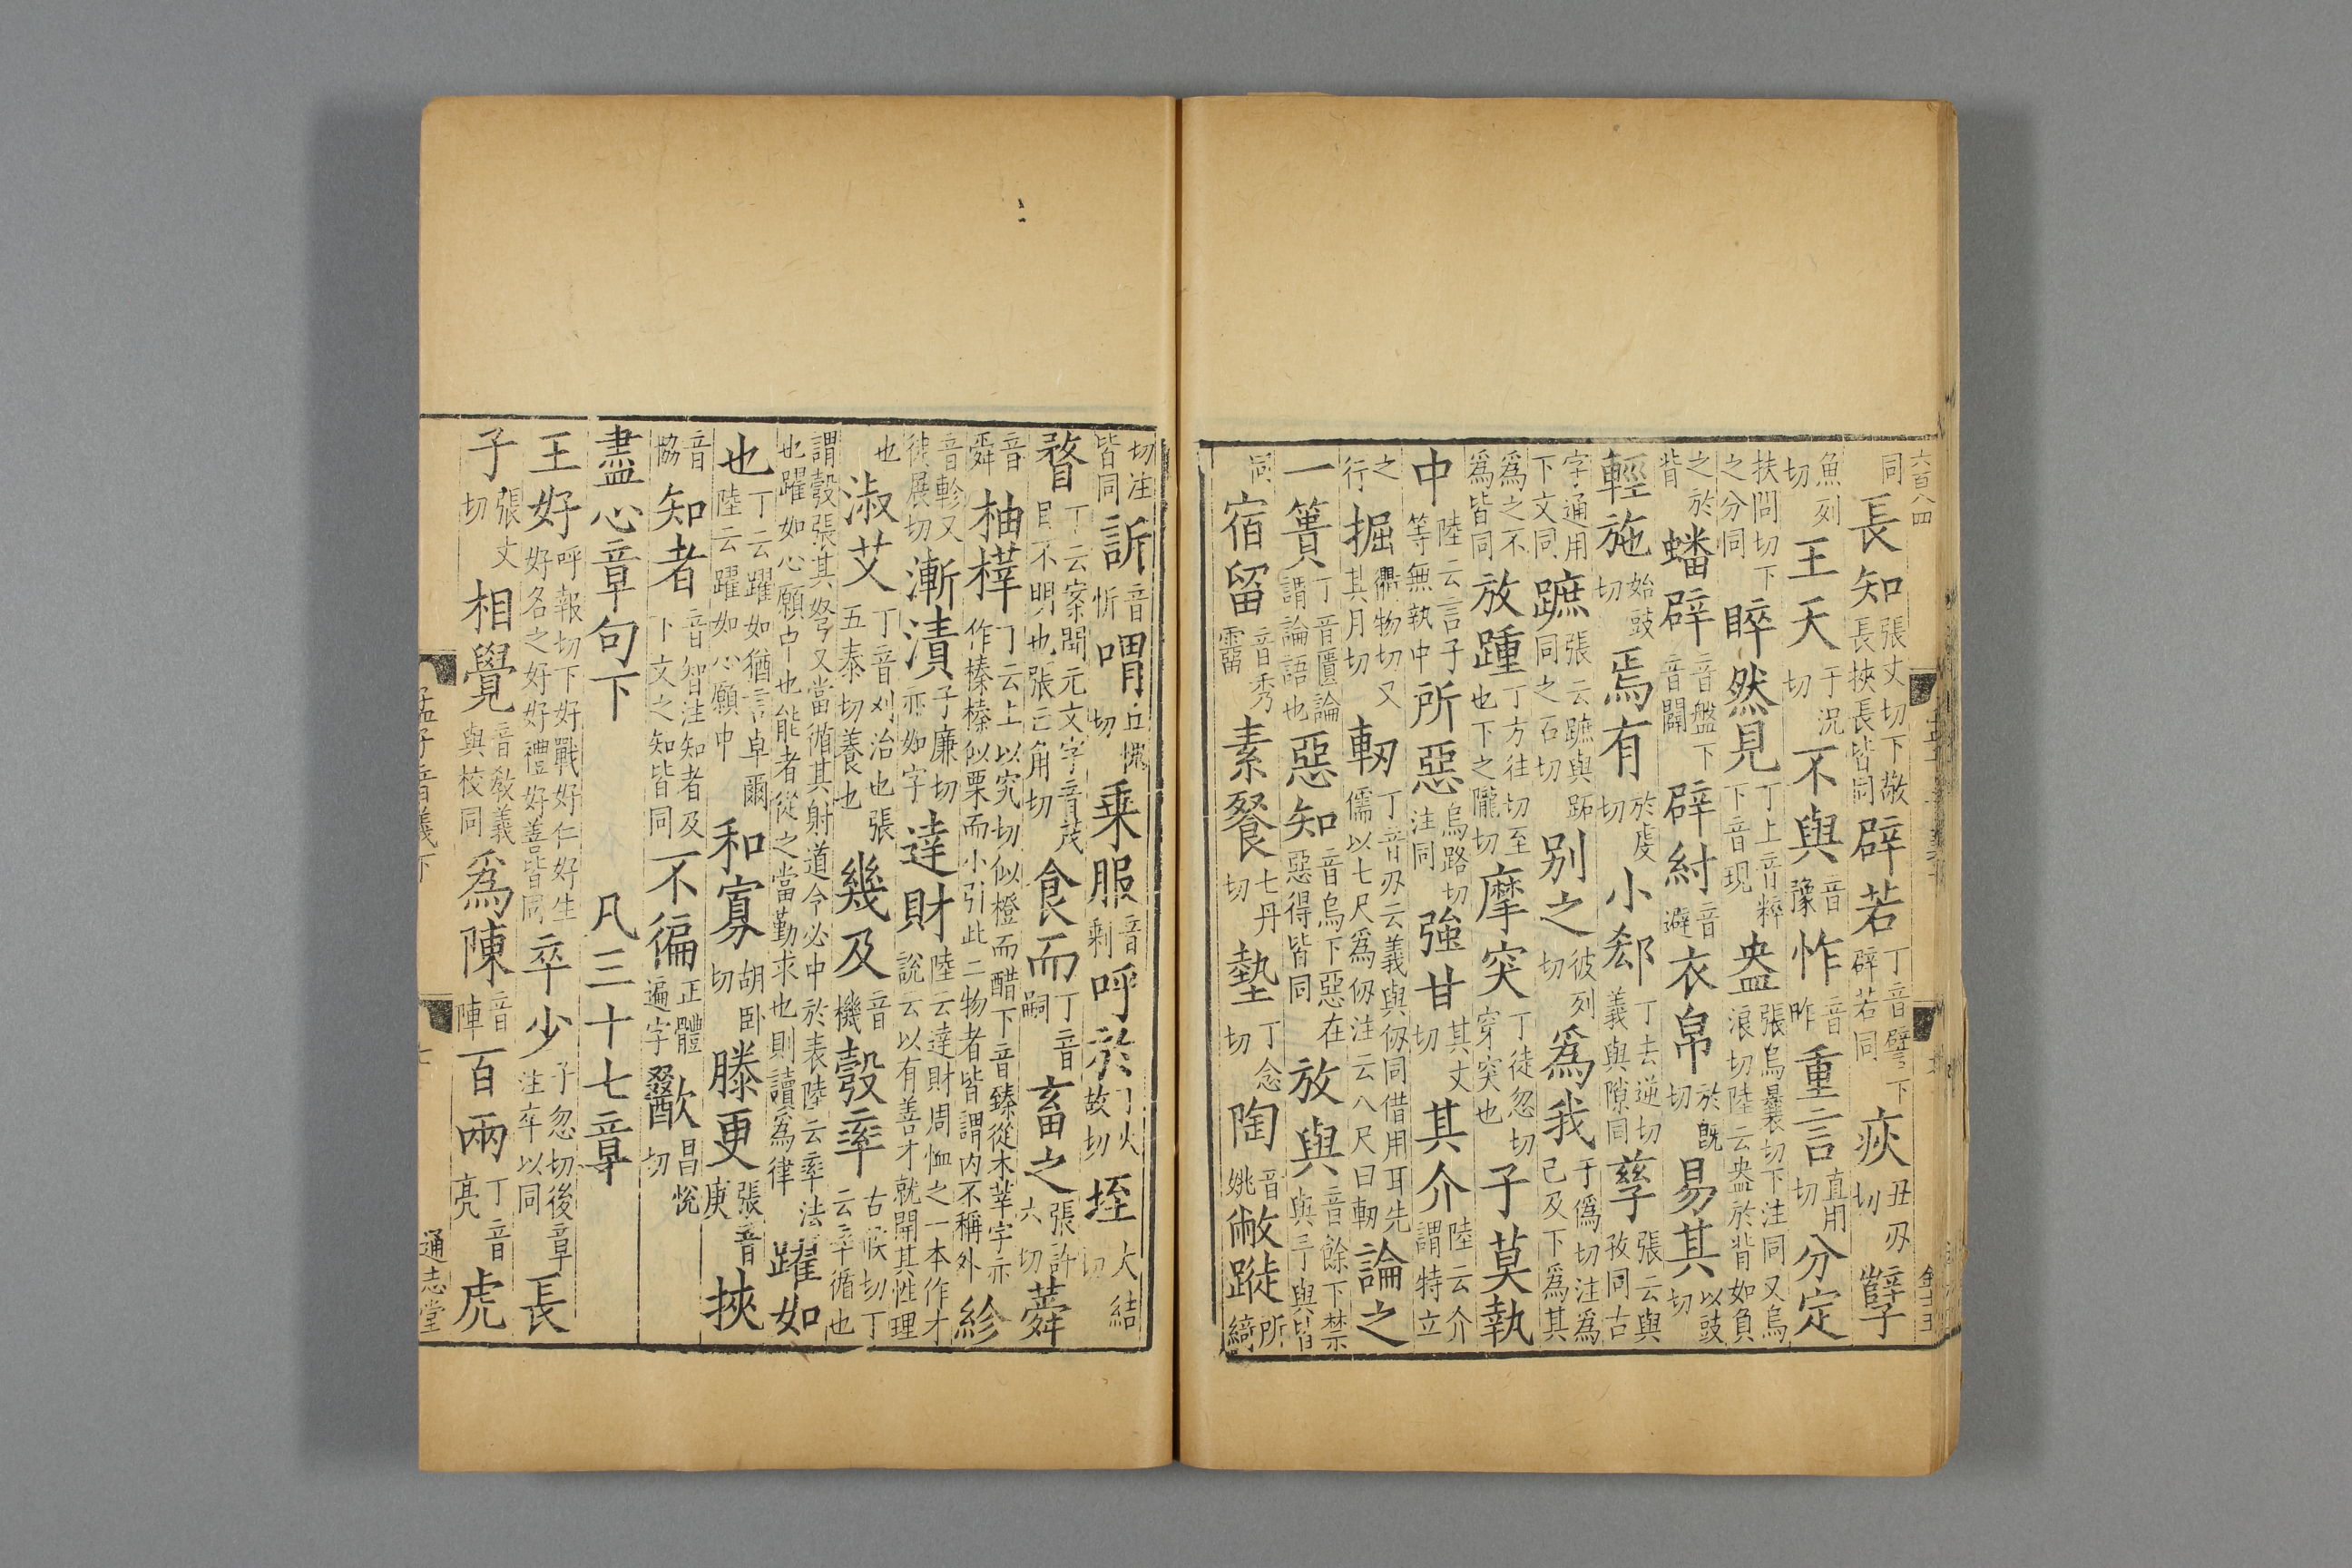 同長知張丈切下敬長挾長皆同辟若丁音譬下辟若同疢丑刃切孽
魚列切王天于況切不與音豫怍音昨重言直用切分定
扶問切下之分同睟然見丁上音粹下音現盎張烏曩切下注同又烏浪切陸云盎於背如負
之於背蟠辟音盤下音闢辟紂音避衣帛於既切易其以豉切
輕施始豉切焉有於虔切小郄丁去逆切義與隙同孳張云與孜同古
字通用下文同蹠張云蹠與跖同之石切別之彼列切爲我于僞切注爲己及下爲其
爲之不爲皆同放踵丁方往切至也下之隴切摩突丁徒忽切穿突也子莫執
中陸云言子等無執中所惡烏路切注同強甘其丈切其介陸云介謂特立
之行掘衢物切又其月切軔丁音刃云義與仞同借用耳先儒以七尺爲仞注云八尺曰軔論之
一簣丁音匱論謂論語也惡知音烏下惡在惡得皆同放與音餘下禁與弓與皆
同宿留音秀霤素餐七丹切墊丁念切陶音姚敝蹝所綺
切注皆同訴音忻喟丘愧切乗服音剩呼於丁火故切垤大結切
瞀丁云案開元文字音茂目不明也張亡角切食而丁音嗣畜之張許六切蕣
音舜柚榁丁云上以究切似橙而醋下音臻從木莘字亦作榛榛似栗而小引此二物者皆謂内不稱外紾
音軫又徒展切漸漬子廉切亦如字達財陸云達財周恤之一本作才說云以有善才就開其性理
也淑艾丁音刈治也張五泰切養也幾及音機彀率古候切丁云率循也
謂彀張其弩又當循其射道令必中於表陸云率法也躍如心願中也能者從之當勤求也則讀爲律躍如
也丁云躍如猶言卓爾陸云躍如心願中和寡胡卧切滕更張音庚挾
音協知者音智注知者及下文之知皆同不徧正體遍字歠昌悅切
盡心章句下　凡三十七章
王好呼報切下好戰好仁好生好名之好好禮好善皆同卒少子忽切後章注卒以同長
子張丈切相覺音教義與校同爲陳音陣百兩丁音亮虎
孟子音義下
通志堂